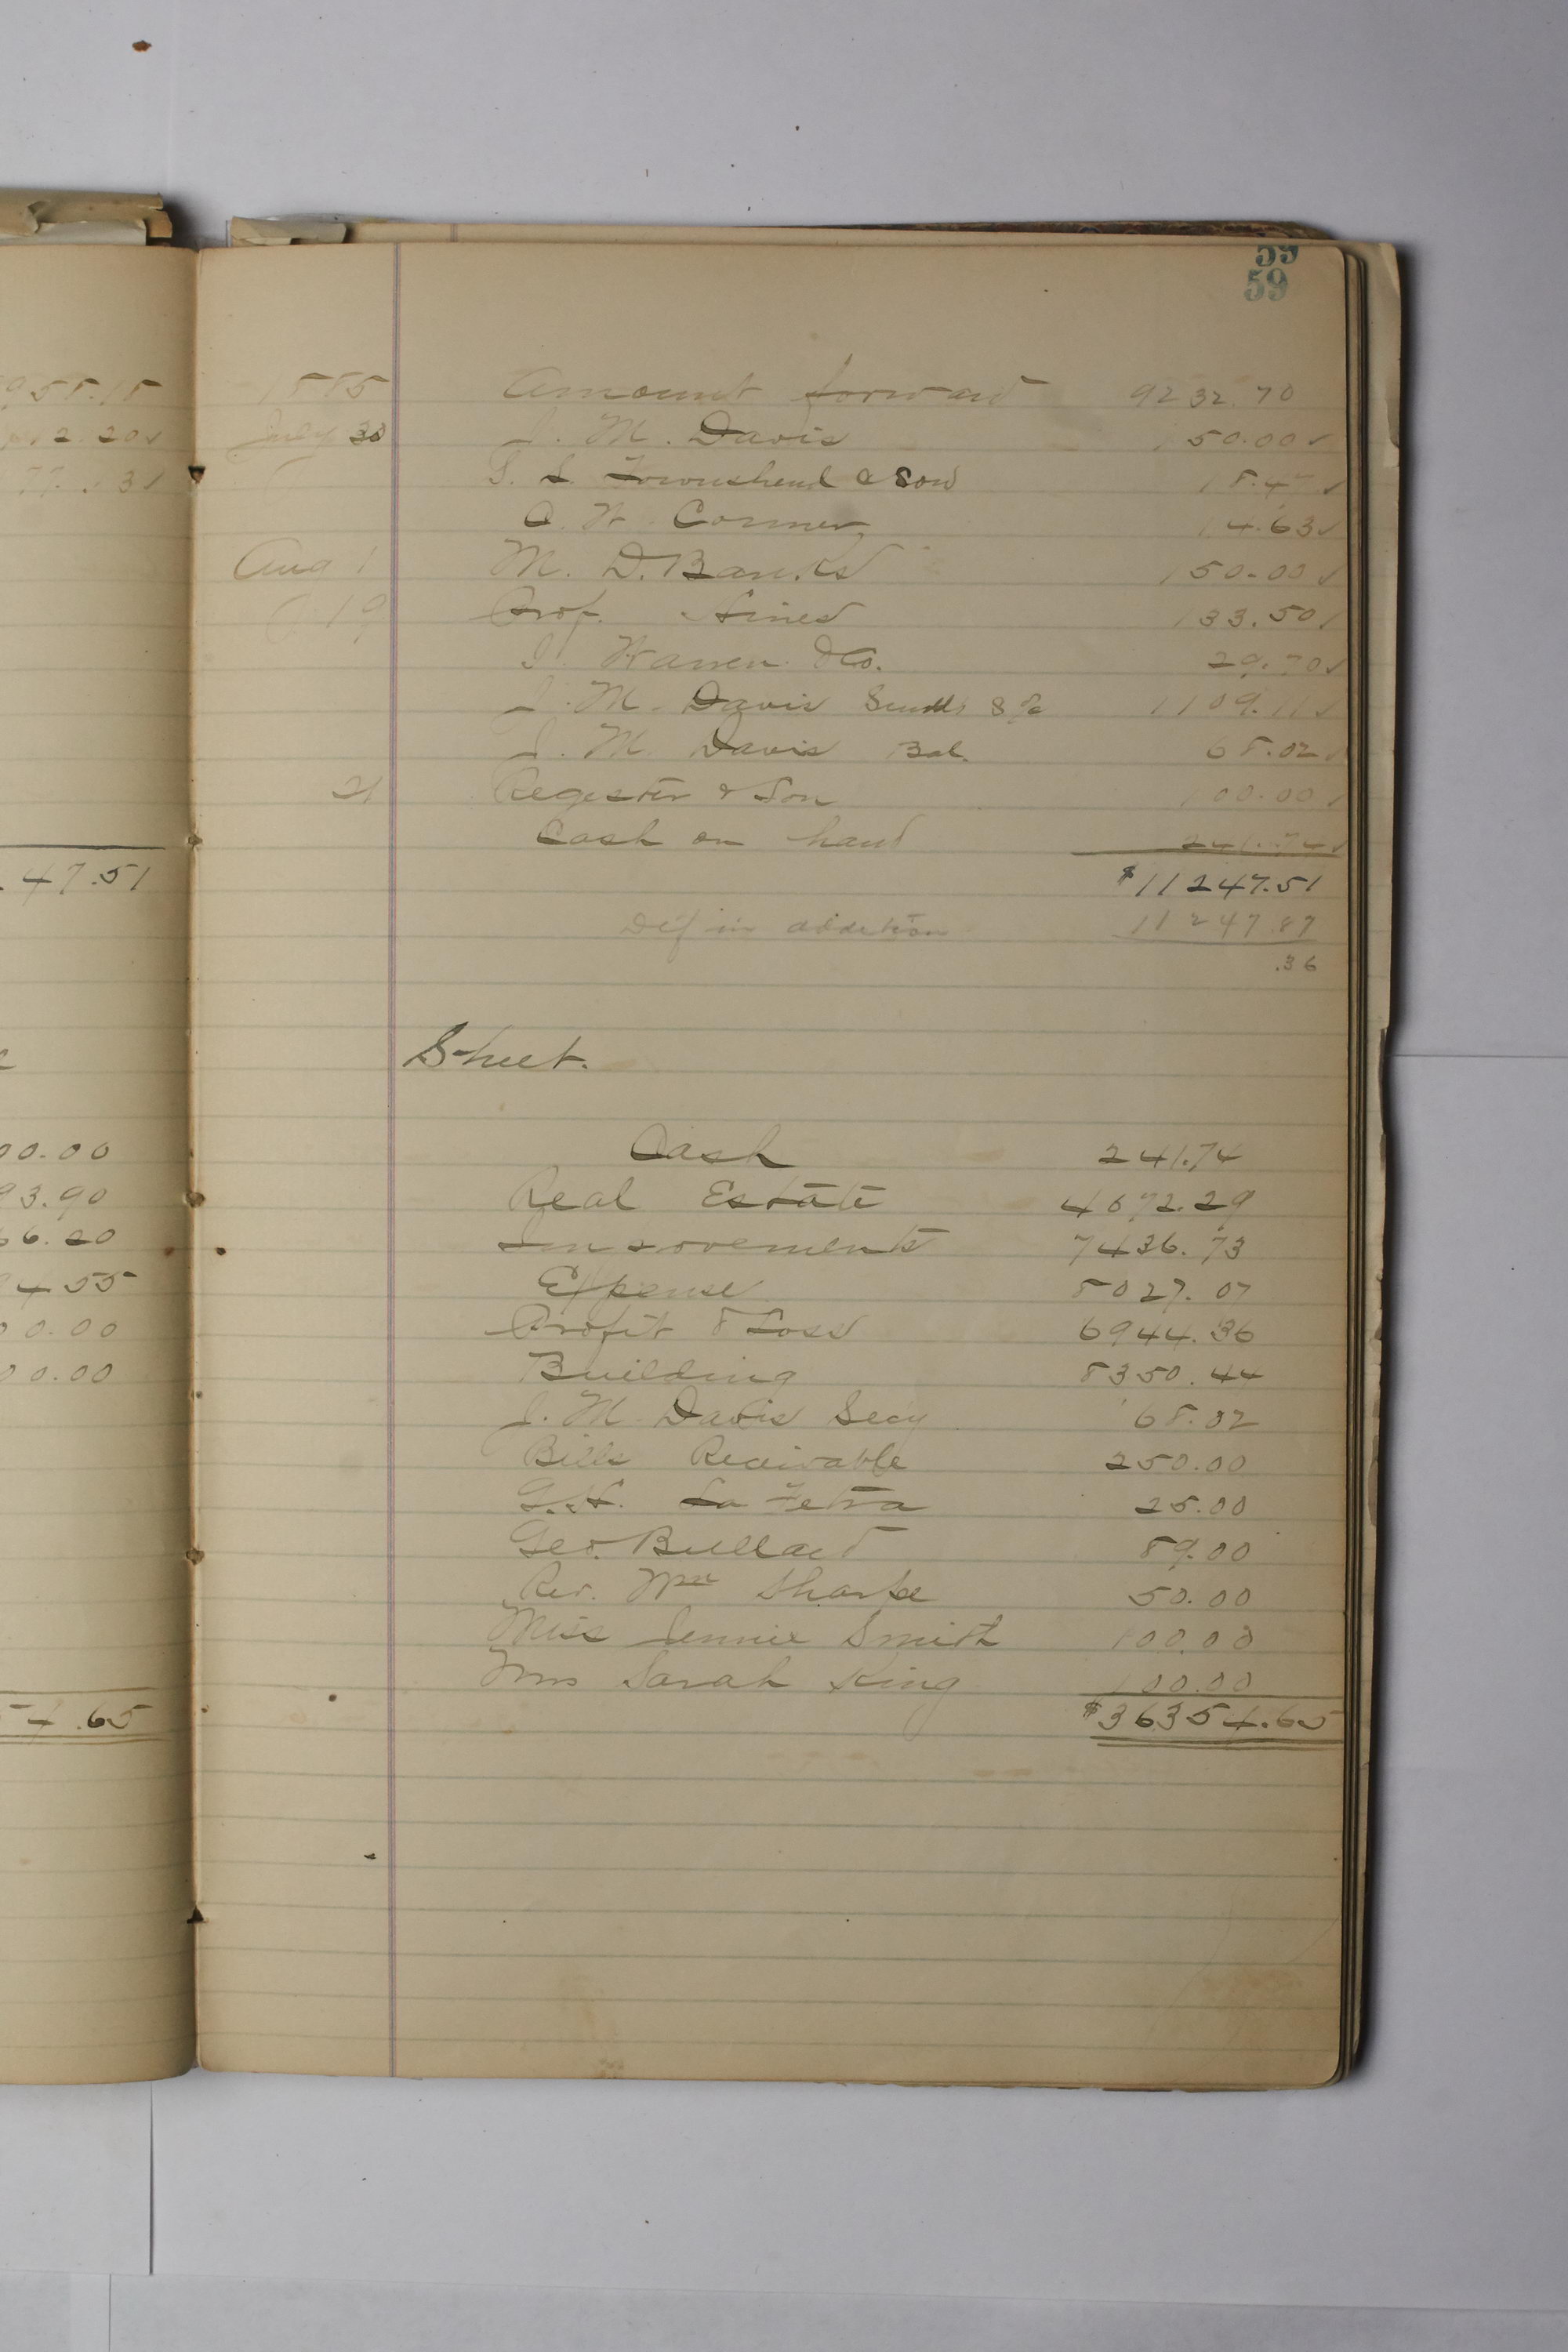 958.18
2.20
47.51
00.00
93.90
66.20
4 55
00.00
00.00
54.65
59
59
1885 Amount forward 9232.70
July 30 J. M. Davis 150.00 ✓
S. S. Townshend & Son 18.47 ✓
O. W. Cormer 14.63 ✓
Aug 1 M. D. Banks 150.00 ✓
19 Prof. Hines 133.50 ✓
J. Warren & Co. 29.70 ✓
J. M. Davis 1109.11 ✓
J. M. Davis Bal. 68.02 ✓
21 Regester & Son 100.00 ✓
Cash on hand 241.74 ✓
$11247.51
Dif in addition 11247.87
.36
Sheet.
Cash 241.74
Real Estate 4672.29
Improvements 7436.73
Expense 8027.07
Profit & Loss 6944.36
Building 8350.44
J. M. Davis Secy 68.02
Bills Receivable 250.00
G. H. La Fetra 25.00
Geo. Bullard 89.00
Rev. Wm Sharpe 50.00
Miss Jennie Smith 100.00
Mrs Sarah King 100.00
$36354.65